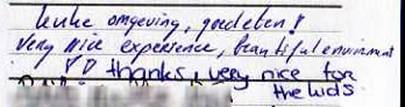 leuke omgeving, goed eten!
very nice experience, beautiful enviroment
thanks, very nice for
the kids